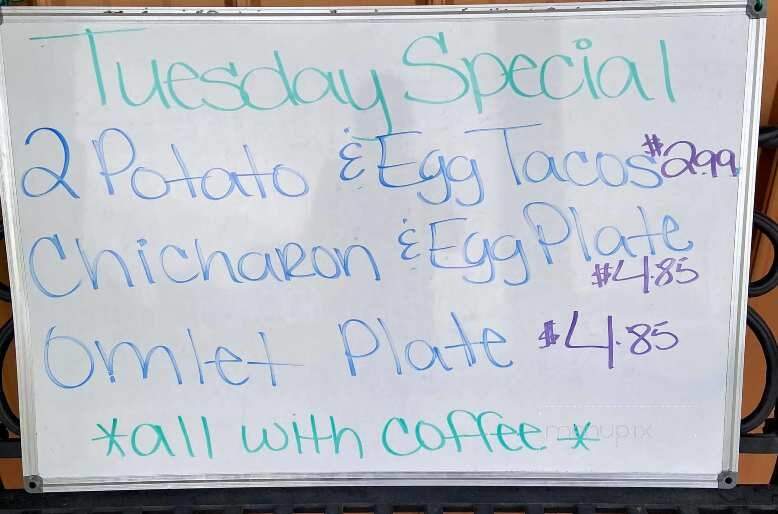 Tuesday Special
2 Potato & Egg Tacos $2.99
Chicharon & Egg Plate
$4.85
Omlet Plate $4.85
*all with coffee*
menupix